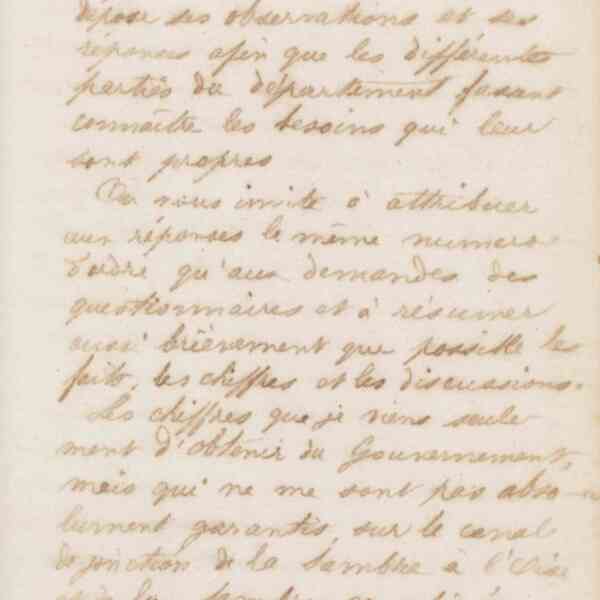 dépose ses observations et ses
réponses afin que les différentes
parties du département fassent
connaître les besoins qui leur
sont propres
On nous invite à attribuer
aux réponses le même numero
d'ordre qu'aux demandes des
questionnaires et à résumer
aussi brièvement que possible les
faits, les chiffres et les discussions.
Les chiffres que je viens seule
ment d'obtenir du Gouvernement,
mais qui ne me sont pas abso-
lument garantis, sur le canal
de jonction de la Sambre à l'Oise
de la Sambre